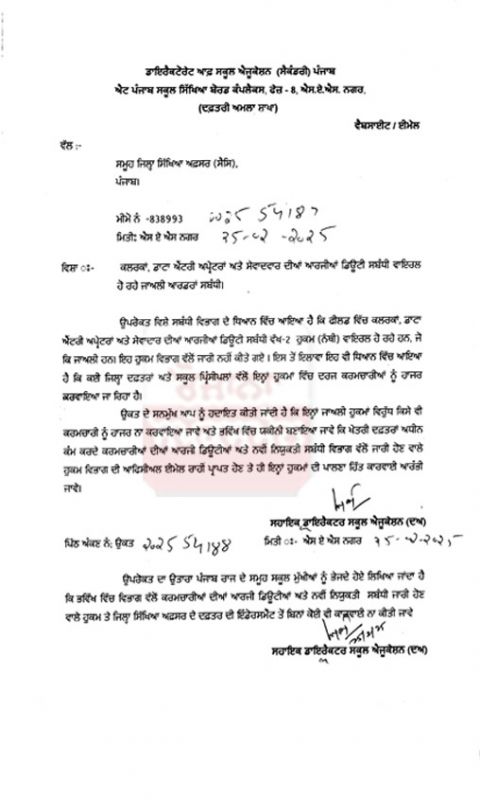 ਡਾਇਰੈਕਟੋਰੇਟ ਆਫ਼ ਸਕੂਲ ਐਜੂਕੇਸ਼ਨ (ਸੈਕੰਡਰੀ) ਪੰਜਾਬ
ਐਟ ਪੰਜਾਬ ਸਕੂਲ ਸਿੱਖਿਆ ਬੋਰਡ ਕੰਪਲੈਕਸ, ਫੇਜ਼ - 8, ਐਸ.ਏ.ਐਸ. ਨਗਰ,
(ਦਫ਼ਤਰੀ ਅਮਲਾ ਸ਼ਾਖਾ)
ਵੈਬਸਾਈਟ / ਈਮੇਲ
ਵੱਲ :-
ਸਮੂਹ ਜਿਲ੍ਹਾ ਸਿੱਖਿਆ ਅਫ਼ਸਰ (ਸੈਸਿ),
ਪੰਜਾਬ।
ਮੀਮੋ ਨੰ -838993 2025 54187
ਮਿਤੀ: ਐਸ ਏ ਐਸ ਨਗਰ 25-02-2025
ਵਿਸ਼ਾ ਃ- ਕਲਰਕਾਂ, ਡਾਟਾ ਐਂਟਰੀ ਅਪ੍ਰੇਟਰਾਂ ਅਤੇ ਸੇਵਾਦਵਾਰ ਦੀਆਂ ਆਰਜੀਆਂ ਡਿਊਟੀ ਸਬੰਧੀ ਵਾਇਰਲ
ਹੋ ਰਹੇ ਜਾਅਲੀ ਆਰਡਰਾਂ ਸਬੰਧੀ।
ਉਪਰੋਕਤ ਵਿਸ਼ੇ ਸਬੰਧੀ ਵਿਭਾਗ ਦੇ ਧਿਆਨ ਵਿੱਚ ਆਇਆ ਹੈ ਕਿ ਫੀਲਡ ਵਿੱਚ ਕਲਰਕਾਂ, ਡਾਟਾ
ਐਂਟਰੀ ਅਪ੍ਰੇਟਰਾਂ ਅਤੇ ਸੇਵਾਦਾਰ ਦੀਆਂ ਆਰਜੀਆਂ ਡਿਊਟੀ ਸਬੰਧੀ ਵੱਖ-2 ਹੁਕਮ (ਨੱਥੀ) ਵਾਇਰਲ ਹੋ ਰਹੇ ਹਨ, ਜੋ
ਕਿ ਜਾਅਲੀ ਹਨ। ਇਹ ਹੁਕਮ ਵਿਭਾਗ ਵੱਲੋਂ ਜਾਰੀ ਨਹੀਂ ਕੀਤੇ ਗਏ। ਇਸ ਤੋਂ ਇਲਾਵਾ ਇਹ ਵੀ ਧਿਆਨ ਵਿੱਚ ਆਇਆ
ਹੈ ਕਿ ਕਈ ਜਿਲ੍ਹਾ ਦਫਤਰਾਂ ਅਤੇ ਸਕੂਲ ਪ੍ਰਿੰਸੀਪਲਾਂ ਵੱਲੋਂ ਇਨ੍ਹਾਂ ਹੁਕਮਾਂ ਵਿੱਚ ਦਰਜ ਕਰਮਚਾਰੀਆਂ ਨੂੰ ਹਾਜਰ
ਕਰਵਾਇਆ ਜਾ ਰਿਹਾ ਹੈ।
ਉਕਤ ਦੇ ਸਨਮੁੱਖ ਆਪ ਨੂੰ ਹਦਾਇਤ ਕੀਤੀ ਜਾਂਦੀ ਹੈ ਕਿ ਇਨ੍ਹਾਂ ਜਾਅਲੀ ਹੁਕਮਾਂ ਵਿਰੁੱਧ ਕਿਸੇ ਵੀ
ਕਰਮਚਾਰੀ ਨੂੰ ਹਾਜਰ ਨਾ ਕਰਵਾਇਆ ਜਾਵੇ ਅਤੇ ਭਵਿੱਖ ਵਿੱਚ ਯਕੀਨੀ ਬਣਾਇਆ ਜਾਵੇ ਕਿ ਖੇਤਰੀ ਦਫਤਰਾਂ ਅਧੀਨ
ਕੰਮ ਕਰਦੇ ਕਰਮਚਾਰੀਆਂ ਦੀਆਂ ਆਰਜੀ ਡਿਊਟੀਆਂ ਅਤੇ ਨਵੀਂ ਨਿਯੁਕਤੀ ਸਬੰਧੀ ਵਿਭਾਗ ਵੱਲੋਂ ਜਾਰੀ ਹੋਣ ਵਾਲੇ
ਹੁਕਮ ਵਿਭਾਗ ਦੀ ਆਫਿਸੀਅਲ ਈਮੇਲ ਰਾਹੀਂ ਪ੍ਰਾਪਤ ਹੋਣ ਤੇ ਹੀ ਇਨ੍ਹਾਂ ਹੁਕਮਾਂ ਦੀ ਪਾਲਣਾ ਹਿੱਤ ਕਾਰਵਾਈ ਆਰੰਭੀ
ਜਾਵੇ।
ਸਹਾਇਕ ਡਾਇਰੈਕਟਰ ਸਕੂਲ ਐਜੂਕੇਸ਼ਨ (ਦਅ)
ਪਿੱਠ ਅੰਕਣ ਨੰ: ਉਕਤ 2025 54188 ਮਿਤੀ ਃ- ਐਸ ਏ ਐਸ ਨਗਰ 25-02-2025
ਉਪਰੋਕਤ ਦਾ ਉਤਾਰਾ ਪੰਜਾਬ ਰਾਜ ਦੇ ਸਮੂਹ ਸਕੂਲ ਮੁੱਖੀਆਂ ਨੂੰ ਭੇਜਦੇ ਹੋਏ ਲਿਖਿਆ ਜਾਂਦਾ ਹੈ
ਕਿ ਭਵਿੱਖ ਵਿੱਚ ਵਿਭਾਗ ਵੱਲੋਂ ਕਰਮਚਾਰੀਆਂ ਦੀਆਂ ਆਰਜੀ ਡਿਊਟੀਆਂ ਅਤੇ ਨਵੀਂ ਨਿਯੁਕਤੀ ਸਬੰਧੀ ਜਾਰੀ ਹੋਣ
ਵਾਲੇ ਹੁਕਮ ਤੇ ਜਿਲ੍ਹਾ ਸਿੱਖਿਆ ਅਫਸਰ ਦੇ ਦਫਤਰ ਦੀ ਇੰਡੋਰਸਮੈਂਟ ਤੋਂ ਬਿਨਾਂ ਕੋਈ ਵੀ ਕਾਰਵਾਈ ਨਾ ਕੀਤੀ ਜਾਵੇ
ਸਹਾਇਕ ਡਾਇਰੈਕਟਰ ਸਕੂਲ ਐਜੂਕੇਸ਼ਨ (ਦਅ)